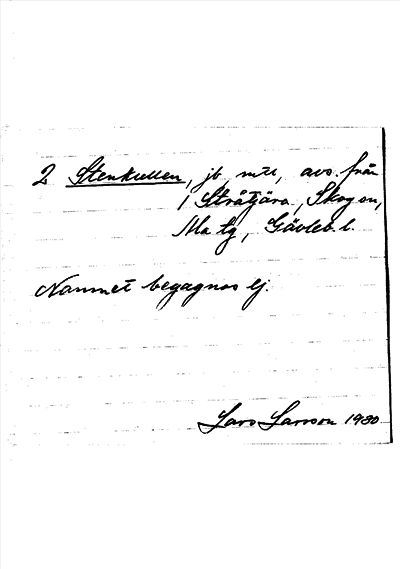 2 Stenkullen, jb, mtl, avs. från
1 Stråtjära, Skog sn,
Ma tg, Gävleb. l.
Namnet begagnas ej.
Lars Larsson 1980